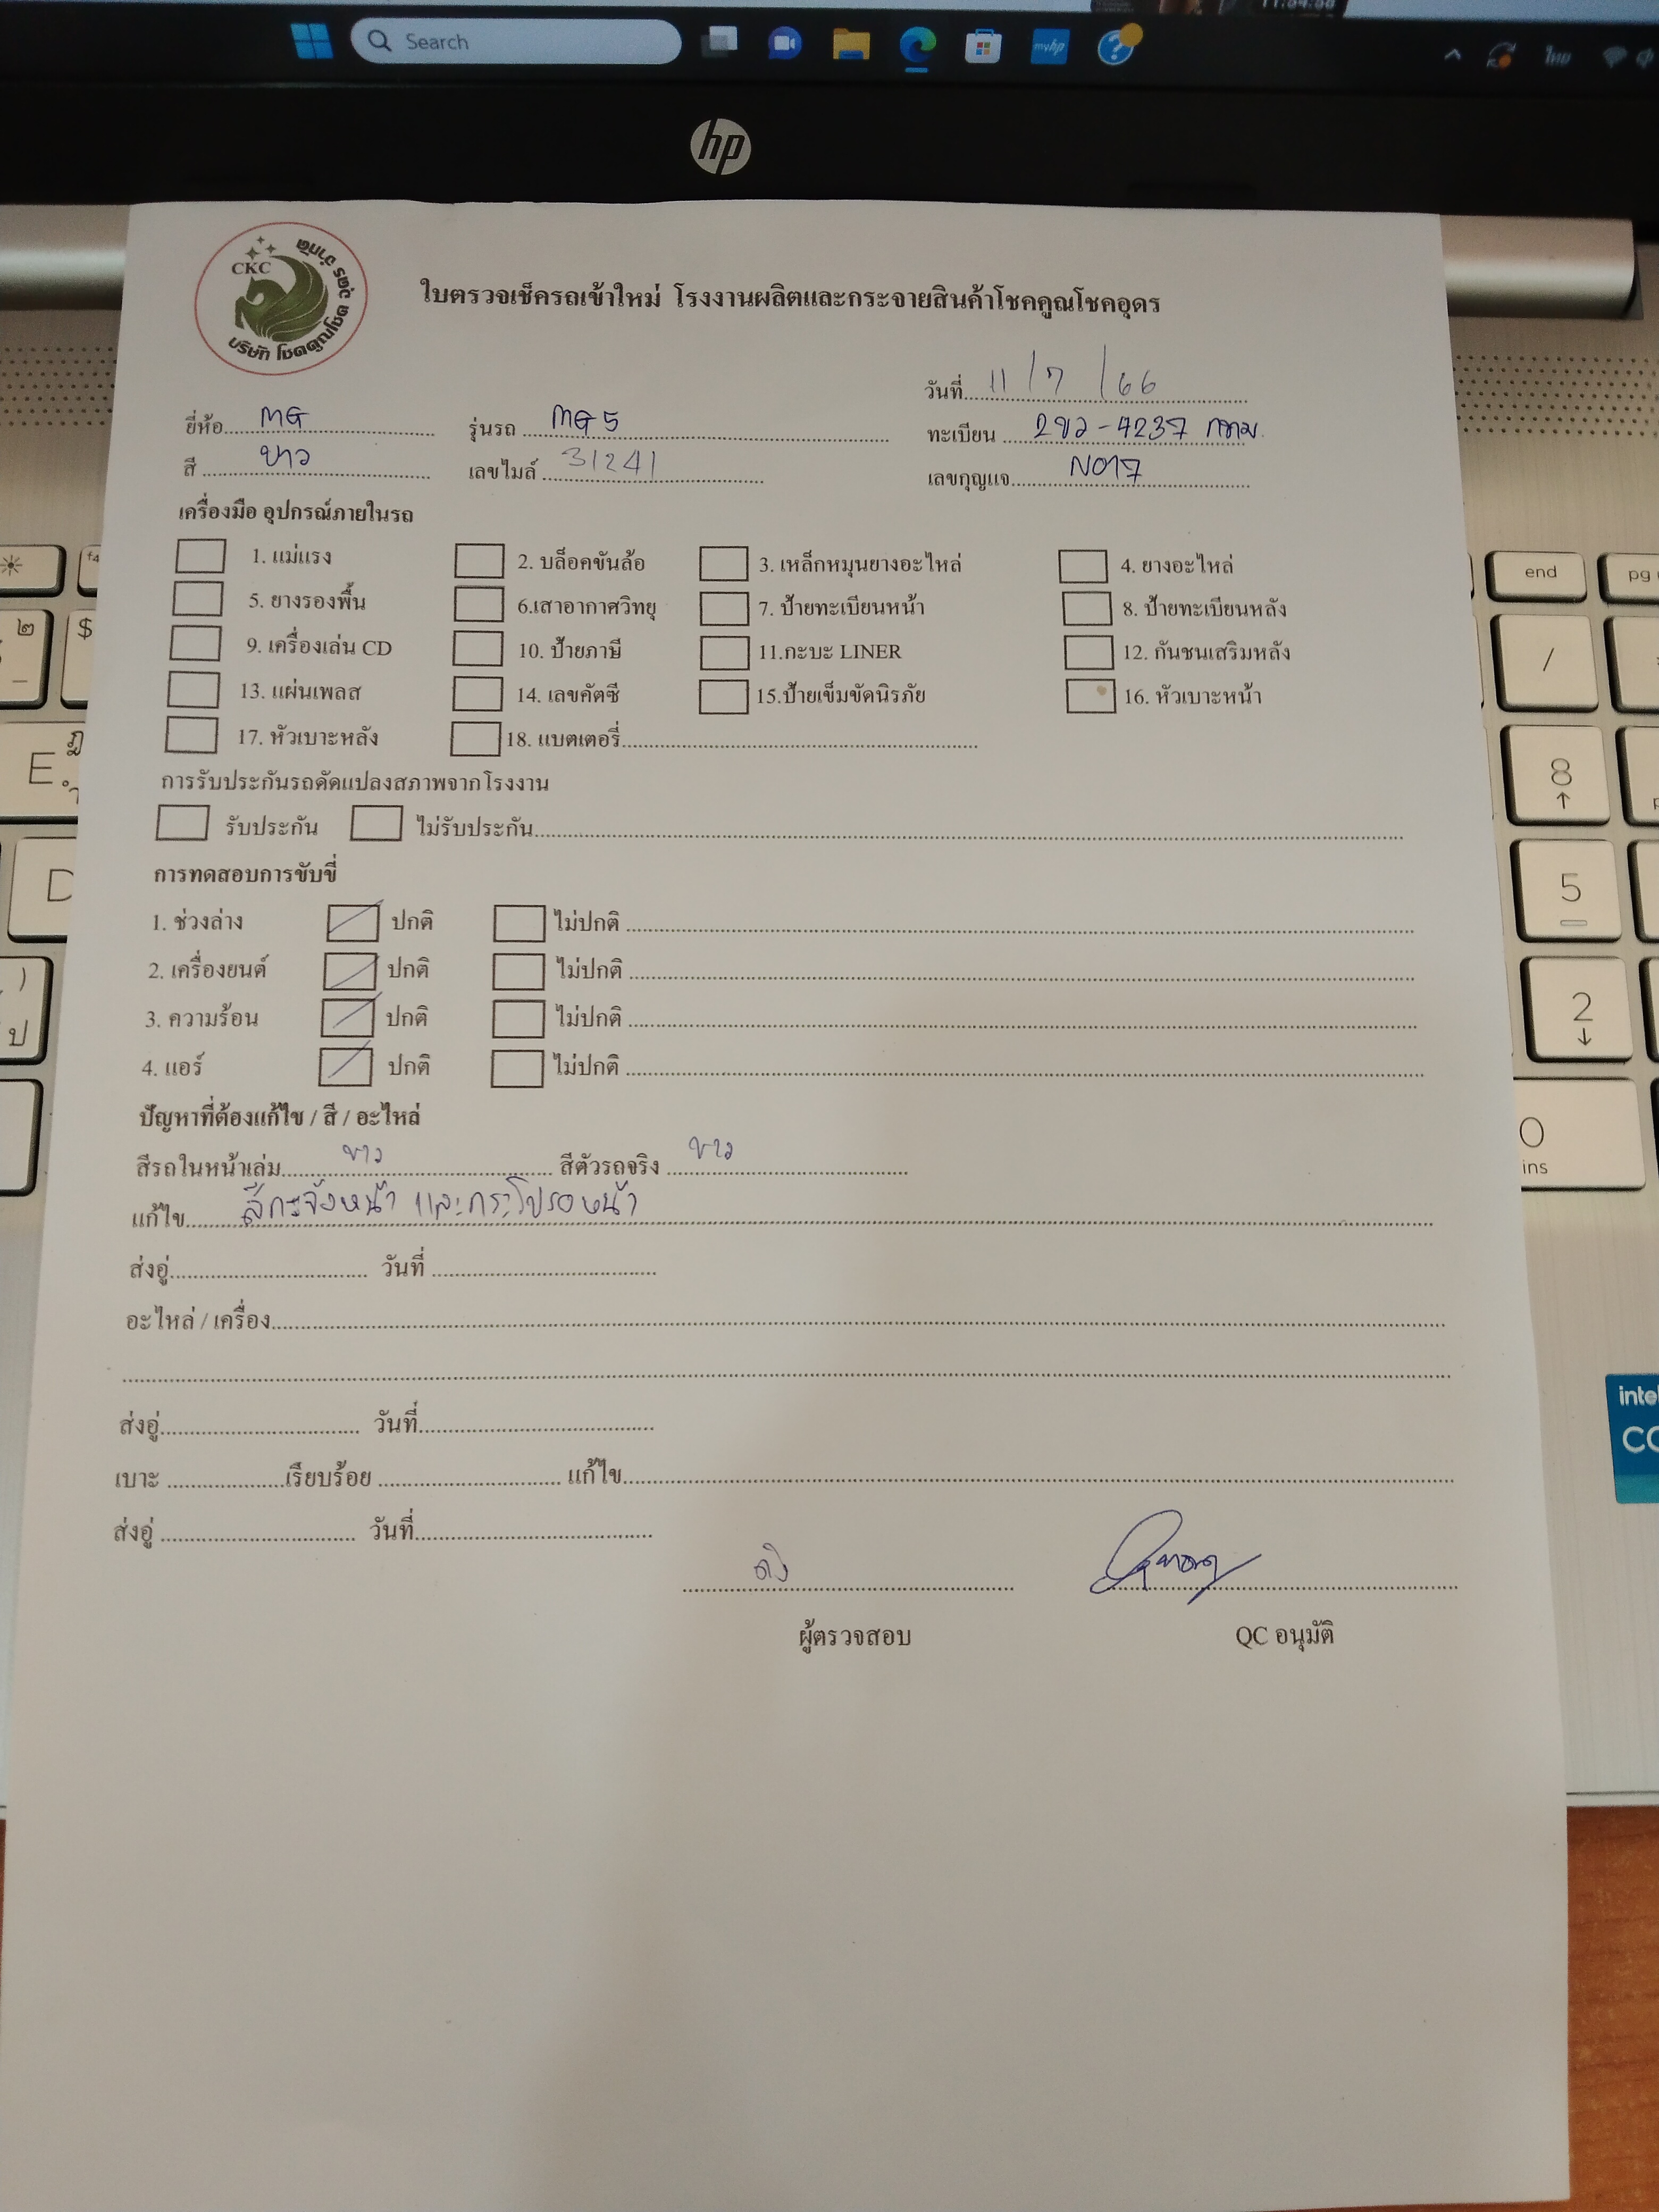 Search
myhp
ไทย
hp
CKC
บริษัท โชคคูณโชค อุดร จำกัด
ใบตรวจเช็ครถเข้าใหม่ โรงงานผลิตและกระจายสินค้าโชคคูณโชคอุดร
วันที่ 11 / 7 / 66
ยี่ห้อ MG รุ่นรถ MG 5 ทะเบียน 2ขว - 4237 กทม.
สี ขาว เลขไมล์ 31241 เลขกุญแจ NO17
เครื่องมือ อุปกรณ์ภายในรถ
1. แม่แรง 2. บล็อคขันล้อ 3. เหล็กหมุนยางอะไหล่ 4. ยางอะไหล่
5. ยางรองพื้น 6.เสาอากาศวิทยุ 7. ป้ายทะเบียนหน้า 8. ป้ายทะเบียนหลัง
9. เครื่องเล่น CD 10. ป้ายภาษี 11.กะบะ LINER 12. กันชนเสริมหลัง
13. แผ่นเพลส 14. เลขคัตซี 15.ป้ายเข็มขัดนิรภัย 16. หัวเบาะหน้า
17. หัวเบาะหลัง 18. แบตเตอรี่
การรับประกันรถดัดแปลงสภาพจากโรงงาน
รับประกัน ไม่รับประกัน
การทดสอบการขับขี่
1. ช่วงล่าง ปกติ ไม่ปกติ
2. เครื่องยนต์ ปกติ ไม่ปกติ
3. ความร้อน ปกติ ไม่ปกติ
4. แอร์ ปกติ ไม่ปกติ
ปัญหาที่ต้องแก้ไข / สี / อะไหล่
สีรถในหน้าเล่ม ขาว สีตัวรถจริง ขาว
แก้ไข สีกระจังหน้า และกระโปรงหน้า
ส่งอู่ วันที่
อะไหล่ / เครื่อง
ส่งอู่ วันที่
เบาะ เรียบร้อย แก้ไข
ส่งอู่ วันที่
ผู้ตรวจสอบ QC อนุมัติ
end
pg
/
8
5
2
0
ins
E
D
$
intel